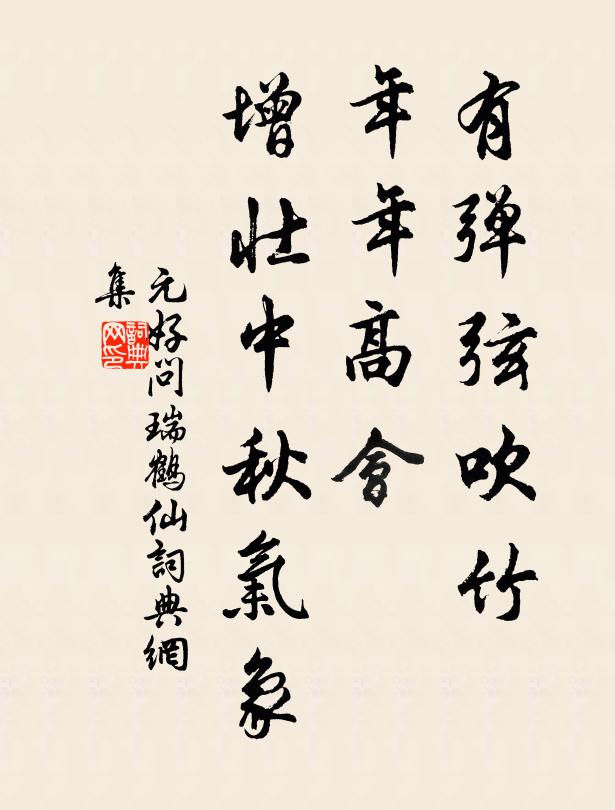 有弹弦吹竹
年年高會
增壯中秋氣象
元好問瑞鶴仙詞典網
集
詞典網印